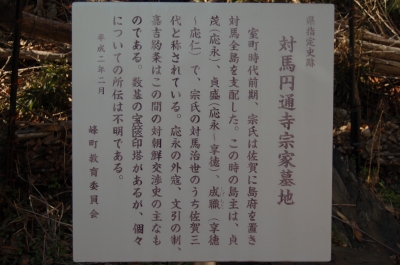 県指定史跡
対馬円通寺宗家墓地
室町時代前期、宗氏は佐賀に島府を置き
対馬全島を支配した。この時の島主は、貞
茂(応永)、貞盛(応永～享徳)、成職(享徳
～応仁)で、宗氏の対馬治世のうち佐賀三
代と称されている。応永の外寇、文引の制、
嘉吉約条はこの間の対朝鮮交渉史の主なも
のである。数基の宝篋印塔があるが、個々
についての所伝は不明である。
平成二年二月
峰町教育委員会